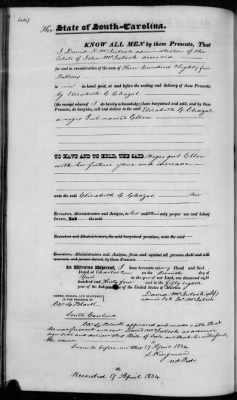 The State of South-Carolina.
KNOW ALL MEN by these Presents, That
I David N. McIntosh administrator of the
Estate of John McIntosh deceased
for and in consideration of the sum of Three hundred Eighty five
Dollars
to me in hand paid, at and before the sealing and delivery of these Presents,
by Elizabeth C. Chazal
(the receipt whereof I do hereby acknowledge) have bargained and sold, and by these
Presents, do bargain, sell and deliver to the said Elizabeth C. Chazal
a negro Girl named Ellen
TO HAVE AND TO HOLD, THE SAID Negro girl Ellen
with her future issue and increase
unto the said Elizabeth C. Chazal her
Executors, Administrators and Assigns, to her and their only proper use and behoof
forever.
Executors, Administrators and Assigns, the said bargained premises, unto the said
Executors, Administrators and Assigns, from and against all persons shall and will
warrant, and forever defend, by these Presents.
In Witness Whereof, I have hereunto set my Hand and Seal
Dated at Charleston on the
April in the year of our Lord, one thousand eight
hundred and thirty four and in the fifty eighth
year of the Independence of the United States of America.
SIGNED, SEALED, AND DELIVERED
IN THE PRESENCE OF
David McIntosh
South Carolina
appeared and made oath that
sign and deliver this Bill of Sale
Sworn to before me this 17 April 1834
Recorded 17 April 1834